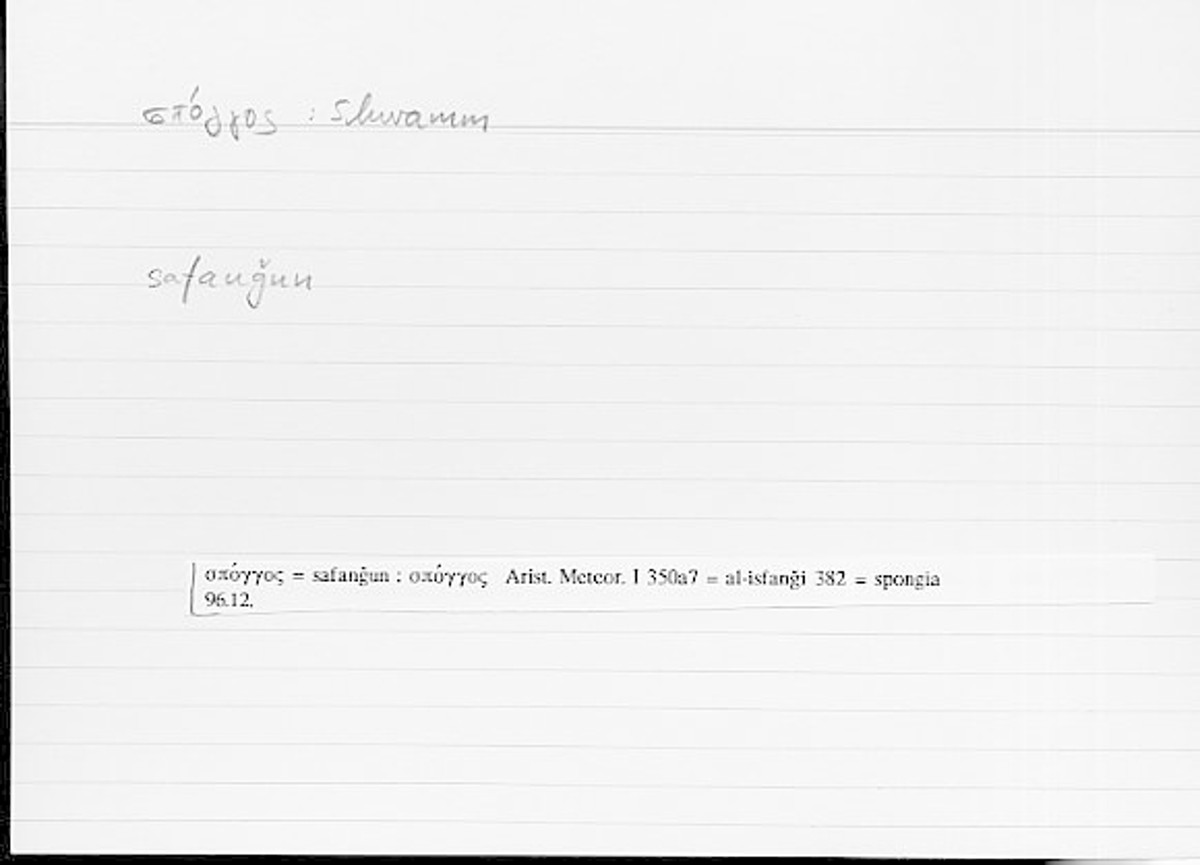 σπόγγος : Schwamm
safanǧun
σπόγγος = safanǧun : σπόγγος Arist. Meteor. I 350a7 = al-isfanǧi 382 = spongia
96.12.